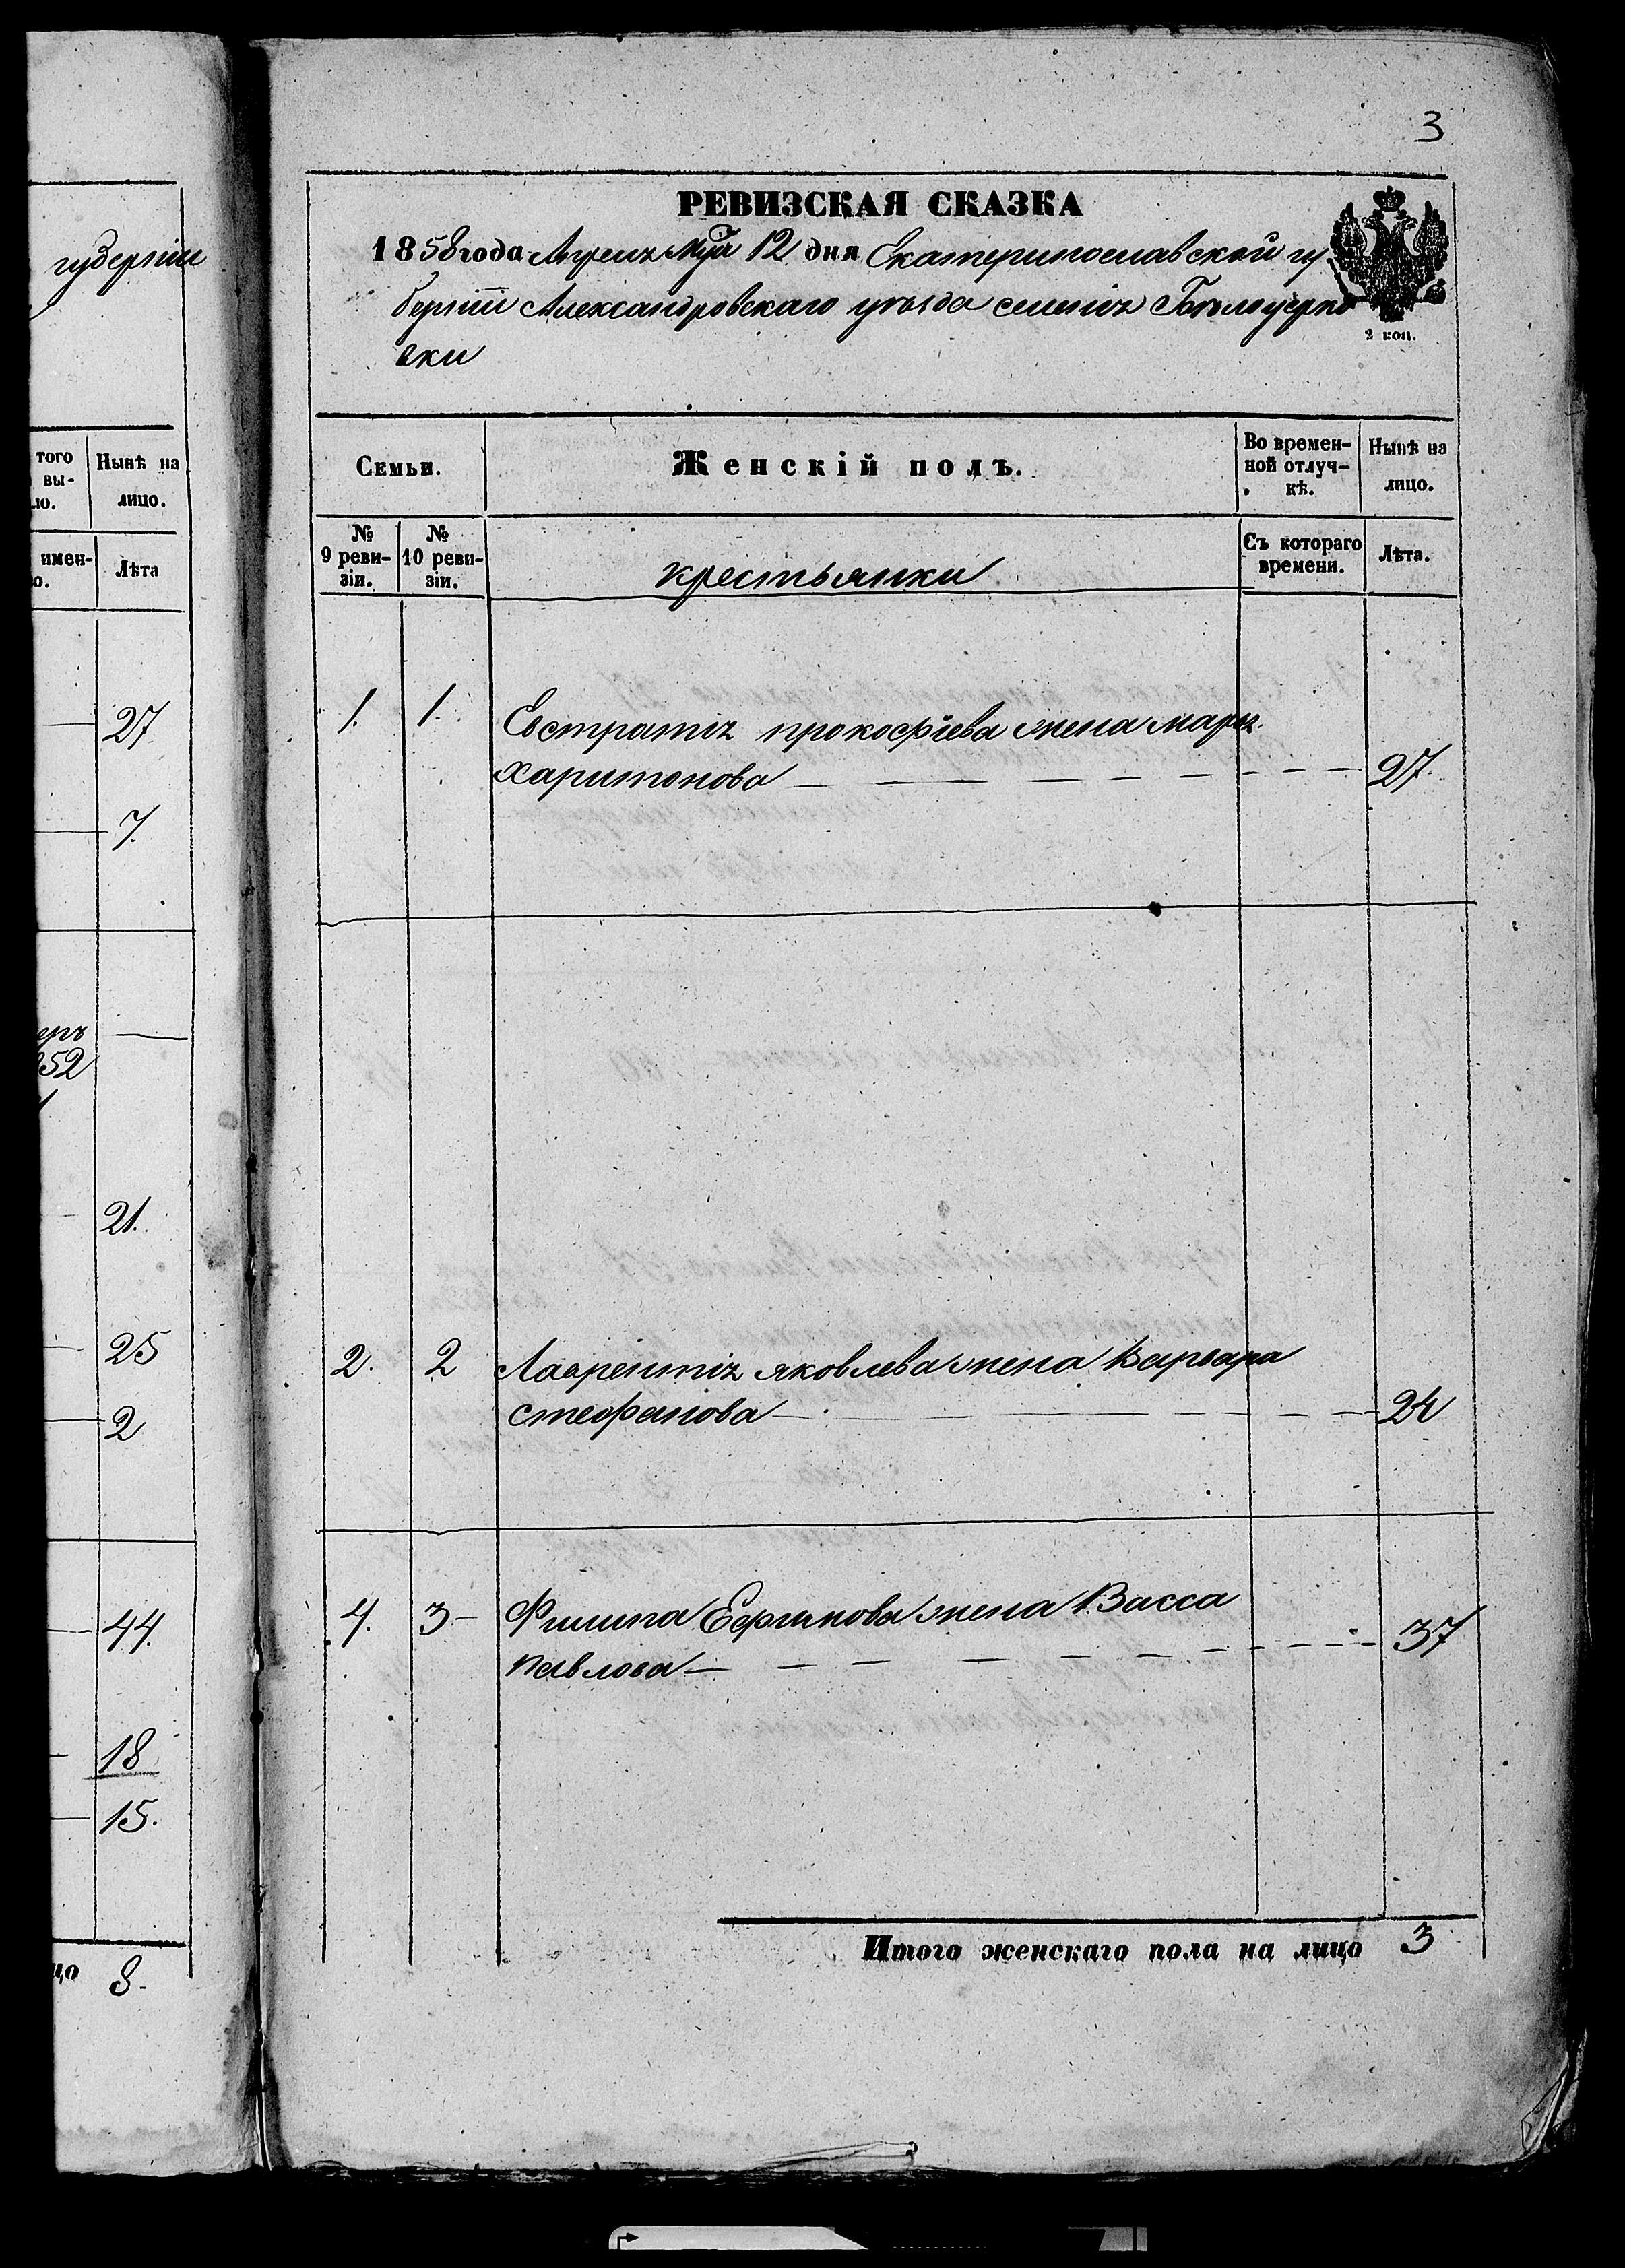 губерніи
того
вы-
ло.
Нынѣ на
лицо.
имен-
о.
Лѣта
27
7.
еръ
852
21.
25
2
44.
18
15.
цо 8.
3
РЕВИЗСКАЯ СКАЗКА
1858 года Апреля 12 дня Екатеринославской гу
берніи Александровскаго уѣзда селенія Бѣлоцерко
вки
2 коп.
Семьи.
Женскій полъ.
Во времен-
ной отлуч-
кѣ.
Нынѣ на
лицо.
№
9 реви-
зіи.
№
10 реви-
зіи.
крестьянки
Съ котораго
времени.
Лѣта.
1. 1. Евстратія прокофіева жена марья
Харитонова 27.
2. 2 Лаврентія яковлева жена Варвара
стефанова 24
4. 3 Филипа Ефимова жена Васса
павлова 37
Итого женскаго пола на лицо 3